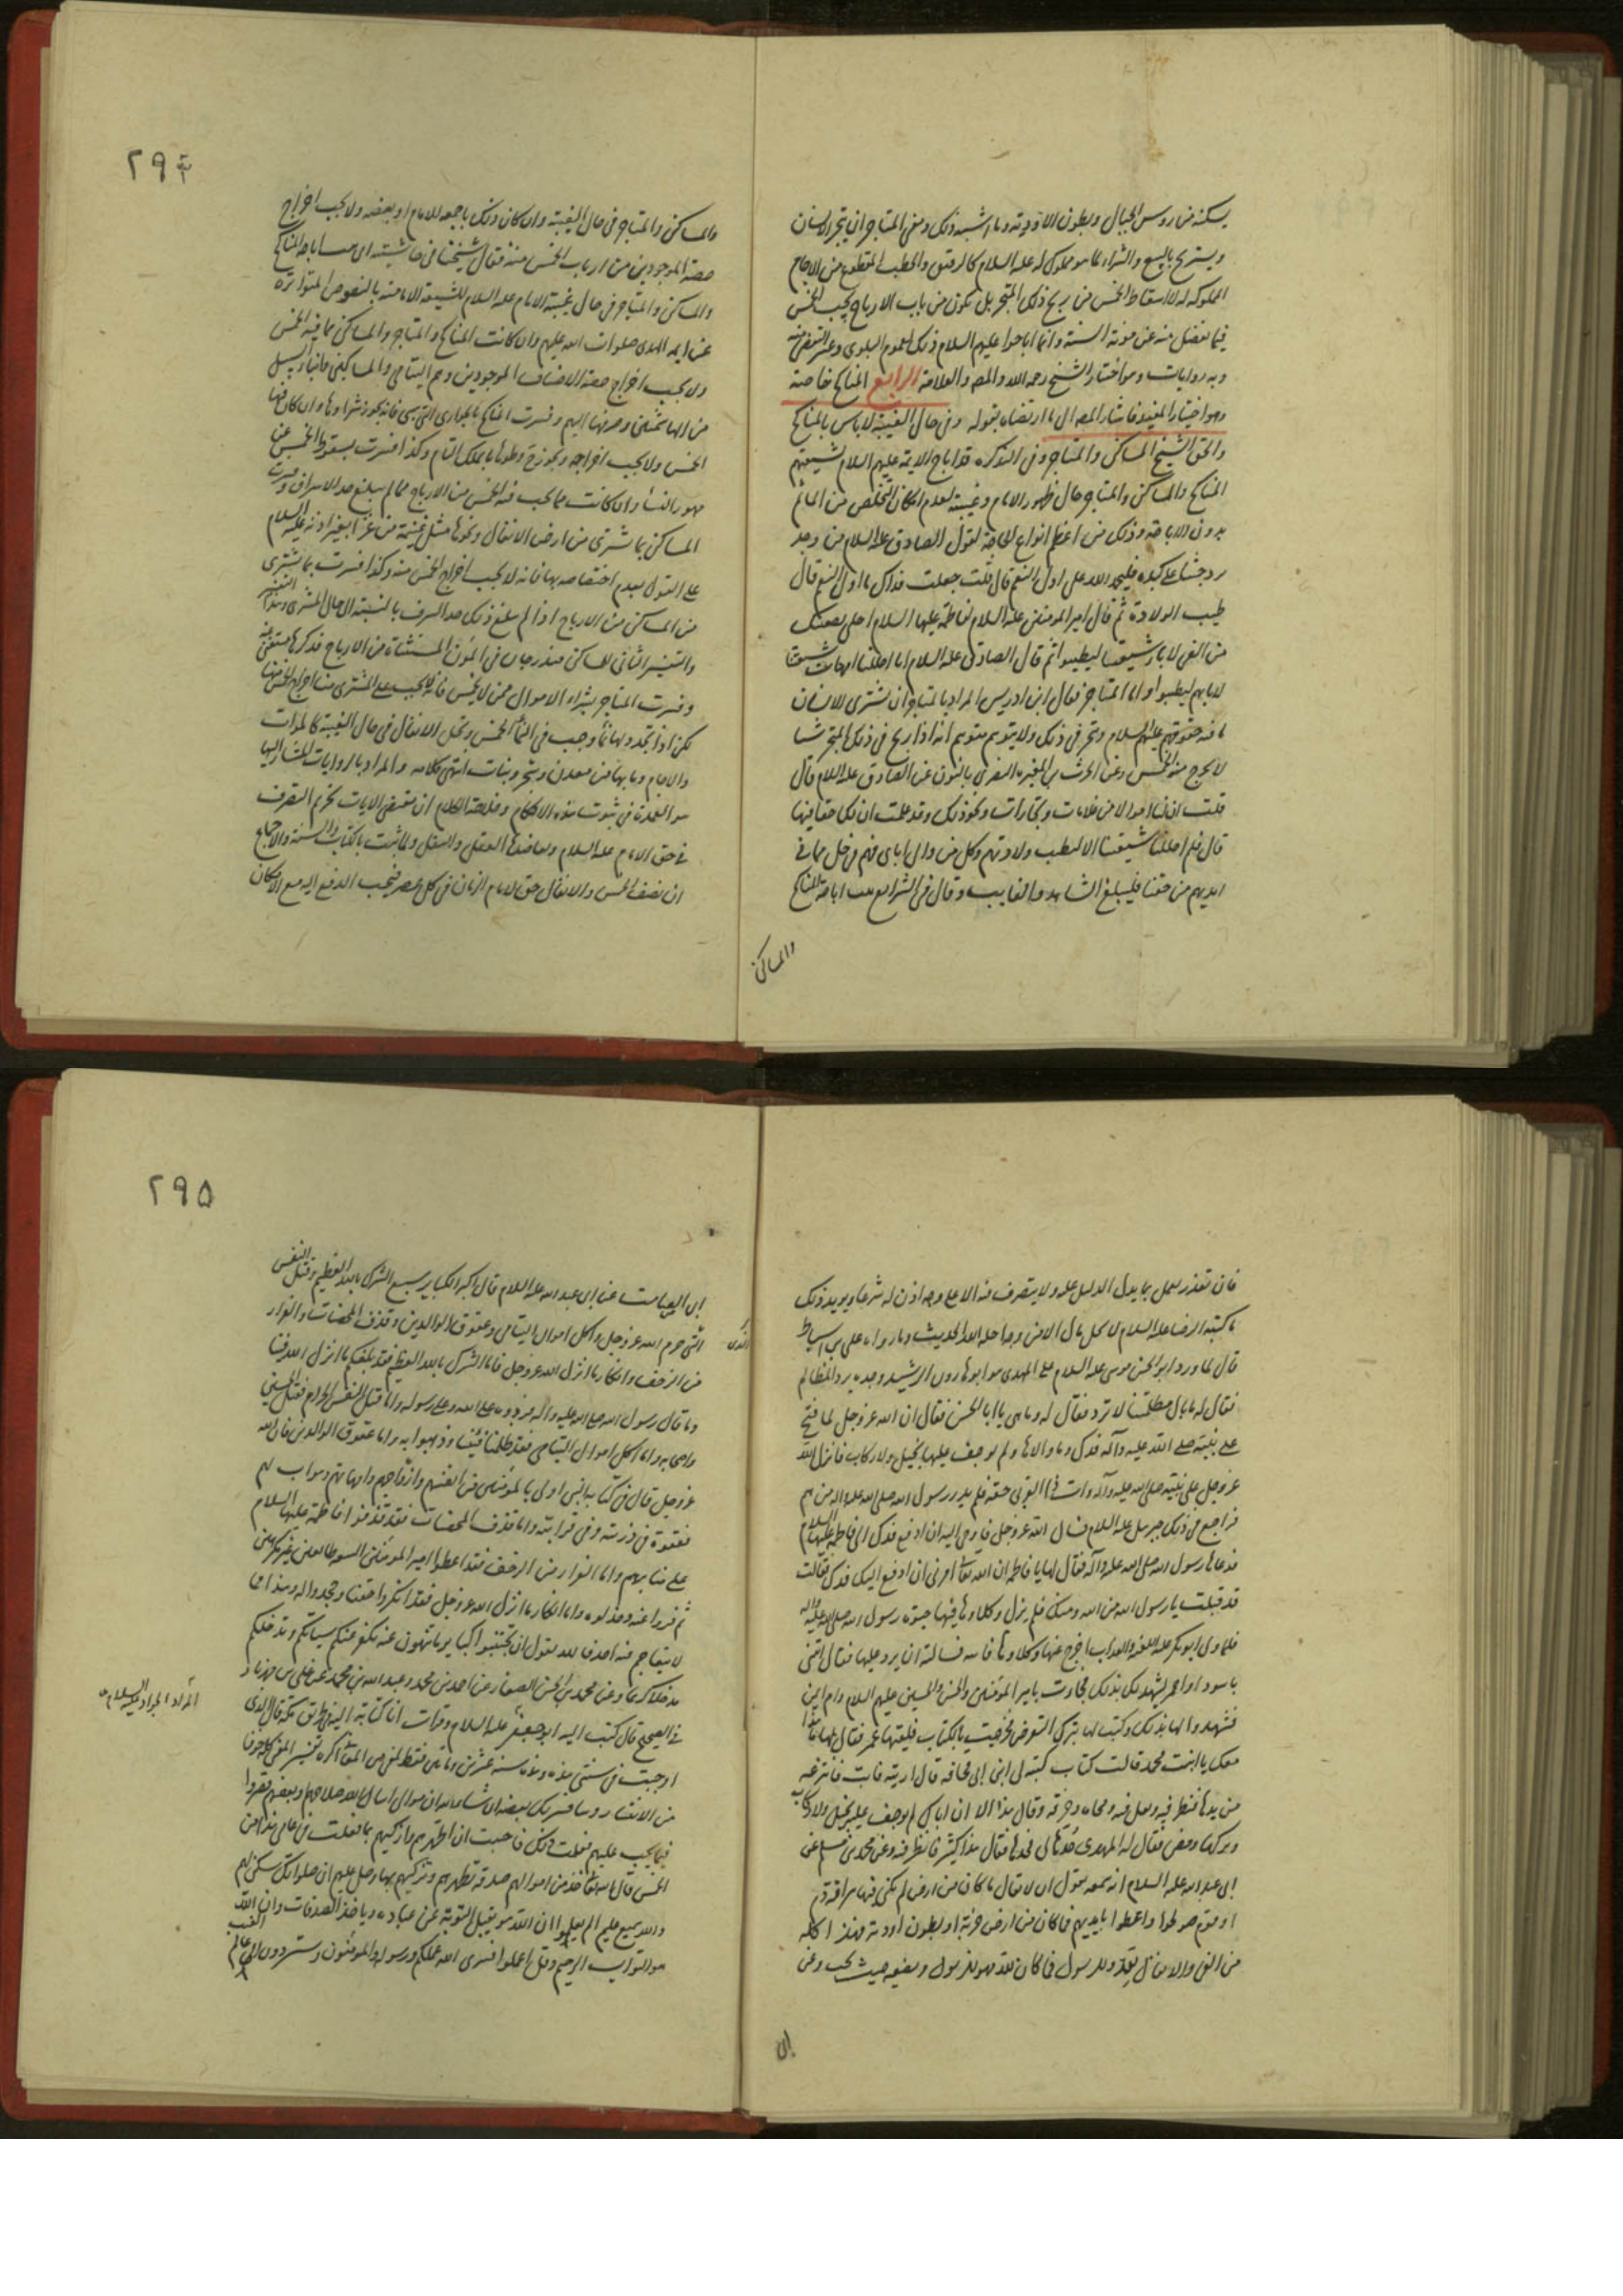 يسكنه من رؤس الجبال وبطون الاودية وما اشبه ذلك ومعنى المتاجر ان يتجر الانسان
ويستريح بالبيع والشراء لما هو مملوك له عليه السلام كالرقيق والحطب المقطوع من الاجام
المملوكة له لا اسقاط الخمس من ربح ذلك المتجر بل يكون من باب الارباح يجب الخمس
فيما يفضل منه عن مؤنة السنة وانما اباحوا عليهم السلام ذلك لعموم البلوى وعسر التقصي منه
وبه روايات وهو اختيار الشيخ رحمه الله والمص والعلامة الرابع المناكح خاصة
وهو اختيار المفيد فاشار المص الى ما ارتضاه بقوله وفي حال الغيبة لا باس بالمناكح
والحق الشيخ المساكن والمتاجر وفي التذكرة قد اباح الائمة عليهم السلام لشيعتهم
المناكح والمساكن والمتاجر حال ظهور الامام وغيبته لعدم امكان التخلص من المآثم
بدون الاباحة وذلك من اعظم انواع الحاجة لقول الصادق عليه السلام من وجد
برد حبنا على كبده فليحمد الله على اول النعم قال قلت جعلت فداك ما اول النعم قال
طيب الولادة ثم قال امير المؤمنين عليه السلام لفاطمة عليها السلام احلي نصيبك
من الفي لاباء شيعتنا ليطيبوا ثم قال الصادق عليه السلام انا احللنا امهات شيعتنا
لابائهم ليطيبوا واما المتاجر فقال ابن ادريس المراد بالمتاجر ان يشتري الانسان
ما فيه حقوقهم عليهم السلام ويتجر في ذلك ولا يتوهم متوهم انه اذا ربح في ذلك المتجر شيئا
لا يخرج منه الخمس وعن الحرث بن المغيرة النصري بالنون عن الصادق عليه السلام قال
قلت ان لنا اموالا من غلات وتجارات ونحو ذلك وقد علمت ان لك حقا فيها
قال فلم احللنا لشيعتنا الا لتطيب ولادتهم وكل من والى اباى فهم في حل مما في
ايديهم من حقنا فليبلغ الشاهد الغايب وقال في الشرايع ثبت اباحة المناكح
والمساكن
٢٩٤
والمساكن والمتاجر في حال الغيبة وان كان ذلك باجمعه للامام او بعضه ولا يجب اخراج
حصة الموجودين من ارباب الخمس منه فقال شيخنا في حاشيته اى مسا اباحة المناكح
والمساكن والمتاجر في حال غيبة الامام عليه السلام للشيعة الامامية بالنصوص المتواترة
عن ائمة الهدى صلوات الله عليهم وان كانت المناكح والمتاجر والمساكن مما فيه الخمس
ولا يجب اخراج حصة الاصناف الموجودين وهم اليتامى والمساكين وابناء السبيل
من الهاشميين وصرفها اليهم وفسرت المناكح بالجوارى التي تسبى فانه يجوز شراؤها وان كان فيها
الخمس ولا يجب اخراجه ويجوز وطؤها بالملك التام وكذا فسرت بسقوط الخمس عن
مهور النساء وان كانت مما يجب فيه الخمس من الارباح مما لم يبلغ حد الاسراف وفسرت
المساكن بما يشترى من ارض الانفال ونحوها مثل غنيمة من غزا بغير اذنه عليه السلام
على القول بعدم اختصاصه بها فانه لا يجب اخراج الخمس منه وكذا فسرت بما يشترى
من المساكن من الارباح اذا لم يبلغ ذلك حد السرف بالنسبة الى حال المشترى وهذا التفسير
والتفسير الثاني للمساكن مندرجان في المؤن المستثناة من الارباح فذكرها مستغنى عنه
وفسرت المتاجر بشراء الاموال ممن لا يخمس فانه لا يجب على المشترى منه اخراج الخمس منها
لكن اذا تجدد لها نماء وجب في النماء الخمس وتحل الانفال في حال الغيبة كالموات
والاجام وما بها من معدن وشجر ونبات انتهى كلامه والمراد بالروايات المشار اليها
هو العمدة في ثبوت هذه الاحكام وخلاصة الكلام ان مقتضى الايات تحريم التصرف
في حق الامام عليه السلام ويعاضدها العقل والنقل ولما ثبت بالكتاب والسنة والاجماع
ان نصف الخمس والانفال حق لامام الزمان في كل عصر فيجب الدفع اليه مع الامكان
فان تعذر يعمل بما يدل الدليل عليه ولا يتصرف فيه الا على وجه اذن له شرعا ويؤيد ذلك
ما كتبه الرضا عليه السلام لا يحل مال الا من وجه احله الله الحديث وما رواه علي بن اسباط
قال لما ورد ابو الحسن موسى عليه السلام على المهدي هو ابو هارون الرشيد وجده يرد المظالم
فقال له ما بال مظلمتنا لا ترد فقال له وما هي يا ابا الحسن فقال ان الله عز وجل لما فتح
على نبيه صلى الله عليه وآله فدك وما والاها ولم يوجف عليها بخيل ولا ركاب فانزل الله
عز وجل على نبيه صلى الله عليه وآله وآت ذا القربى حقه فلم يدر رسول الله صلى الله عليه وآله من هم
فراجع في ذلك جبريل عليه السلام فسال الله عز وجل فاوحى اليه ان ادفع فدك الى فاطمة عليها السلام
فدعاها رسول الله صلى الله عليه وآله فقال لها يا فاطمة ان الله تعالى امرني ان ادفع اليك فدك فقالت
قد قبلت يا رسول الله من الله ومنك فلم يزل وكلاؤها فيها حيوة رسول الله صلى الله عليه وآله
فلما ولى ابوبكر عليه اللعنة والعذاب اخرج عنها وكلاءها فاتته فسالته ان يرد عليها فقال ائتني
باسود او احمر يشهد لك بذلك فجاءت بامير المؤمنين والحسن والحسين عليهم السلام وام ايمن
فشهدوا لها بذلك وكتب لها بترك التعرض فخرجت بالكتاب فلقيها عمر فقال لها ما هذا
معك يا ابنت محمد قالت كتاب كتبه لى ابن ابي قحافة قال اريته فابت فانتزعه
من يدها فنظر فيه وتفل فيه ومحاه وخرقه وقال هذا الا ان اباك لم يوجف عليه بخيل ولا ركاب
وتركها ومضى فقال له المهدي حدها لى فحدها فقال هذا كثير فانظر فيه وعن محمد بن مسلم عن
ابي عبد الله عليه السلام انه سمعه يقول ان الانفال ما كان من ارض لم يكن فيها هراقة دم
او قوم صولحوا واعطوا بايديهم فما كان من ارض خربة او بطون اودية فهذا كله
من الفي والانفال لله وللرسول فما كان لله فهو للرسول ويضعه حيث يحب وعن
ابى
٢٩٥
ابى الصامت عن ابى عبد الله عليه السلام قال اكبر الكباير سبع الشرك بالله العظيم وقتل النفس
التي حرم الله عز وجل واكل اموال اليتامى وعقوق الوالدين وقذف المحصنات والفرار
من الزحف وانكار ما انزل الله عز وجل فاما الشرك بالله العظيم فقد بلغكم ما انزل الله فينا
وما قال رسول الله صلى الله عليه وآله فردوه على الله وعلى رسوله واما قتل النفس الحرام فقتل الحسين
واصحابه واما اكل اموال اليتامى فقد ظلمنا فيئنا وذهبوا به واما عقوق الوالدين فان الله
عز وجل قال في كتابه النبي اولى بالمؤمنين من انفسهم وازواجه امهاتهم وهو اب لهم
فعقوه في ذريته وفي قرابته واما قذف المحصنات فقد قذفوا فاطمة عليها السلام
على منابرهم واما الفرار من الزحف فقد اعطوا امير المؤمنين البيعة طائعين غير مكرهين
ثم فروا عنه وخذلوه واما انكار ما انزل الله عز وجل فقد انكروا حقنا وجحدوا له وهذا مما
لا يتعاجم فيه احد والله يقول ان تجتنبوا كباير ما تنهون عنه نكفر عنكم سيئاتكم وندخلكم
مدخلا كريما وعن محمد بن الحسن الصفار عن احمد بن محمد وعبد الله بن محمد عن علي بن مهزيار
في الصحيح قال كتب اليه ابو جعفر عليه السلام وقرات انا كتابه اليه في طريق مكة قال الذى
المراد الجواد عليه السلام
اوجبت في سنتي هذه وهذه سنة عشرين ومائتين فقط لمعنى من المعانى اكره تفسير المعنى كله خوفا
من الانتشار وسافسر لك بعضه ان شاء الله ان موالى اسال الله صلاحهم او بعضهم قصروا
فيما يجب عليهم فعلمت ذلك فاحببت ان اطهرهم وازكيهم بما فعلت في عامى هذا من
الخمس قال الله تعالى خذ من اموالهم صدقة تطهرهم وتزكيهم بها وصل عليهم ان صلواتك سكن لهم
والله سميع عليم الم يعلموا ان الله هو يقبل التوبة عن عباده وياخذ الصدقات وان الله
هو التواب الرحيم وقل اعملوا فسيرى الله عملكم ورسوله والمؤمنون وستردون الى عالم الغيب